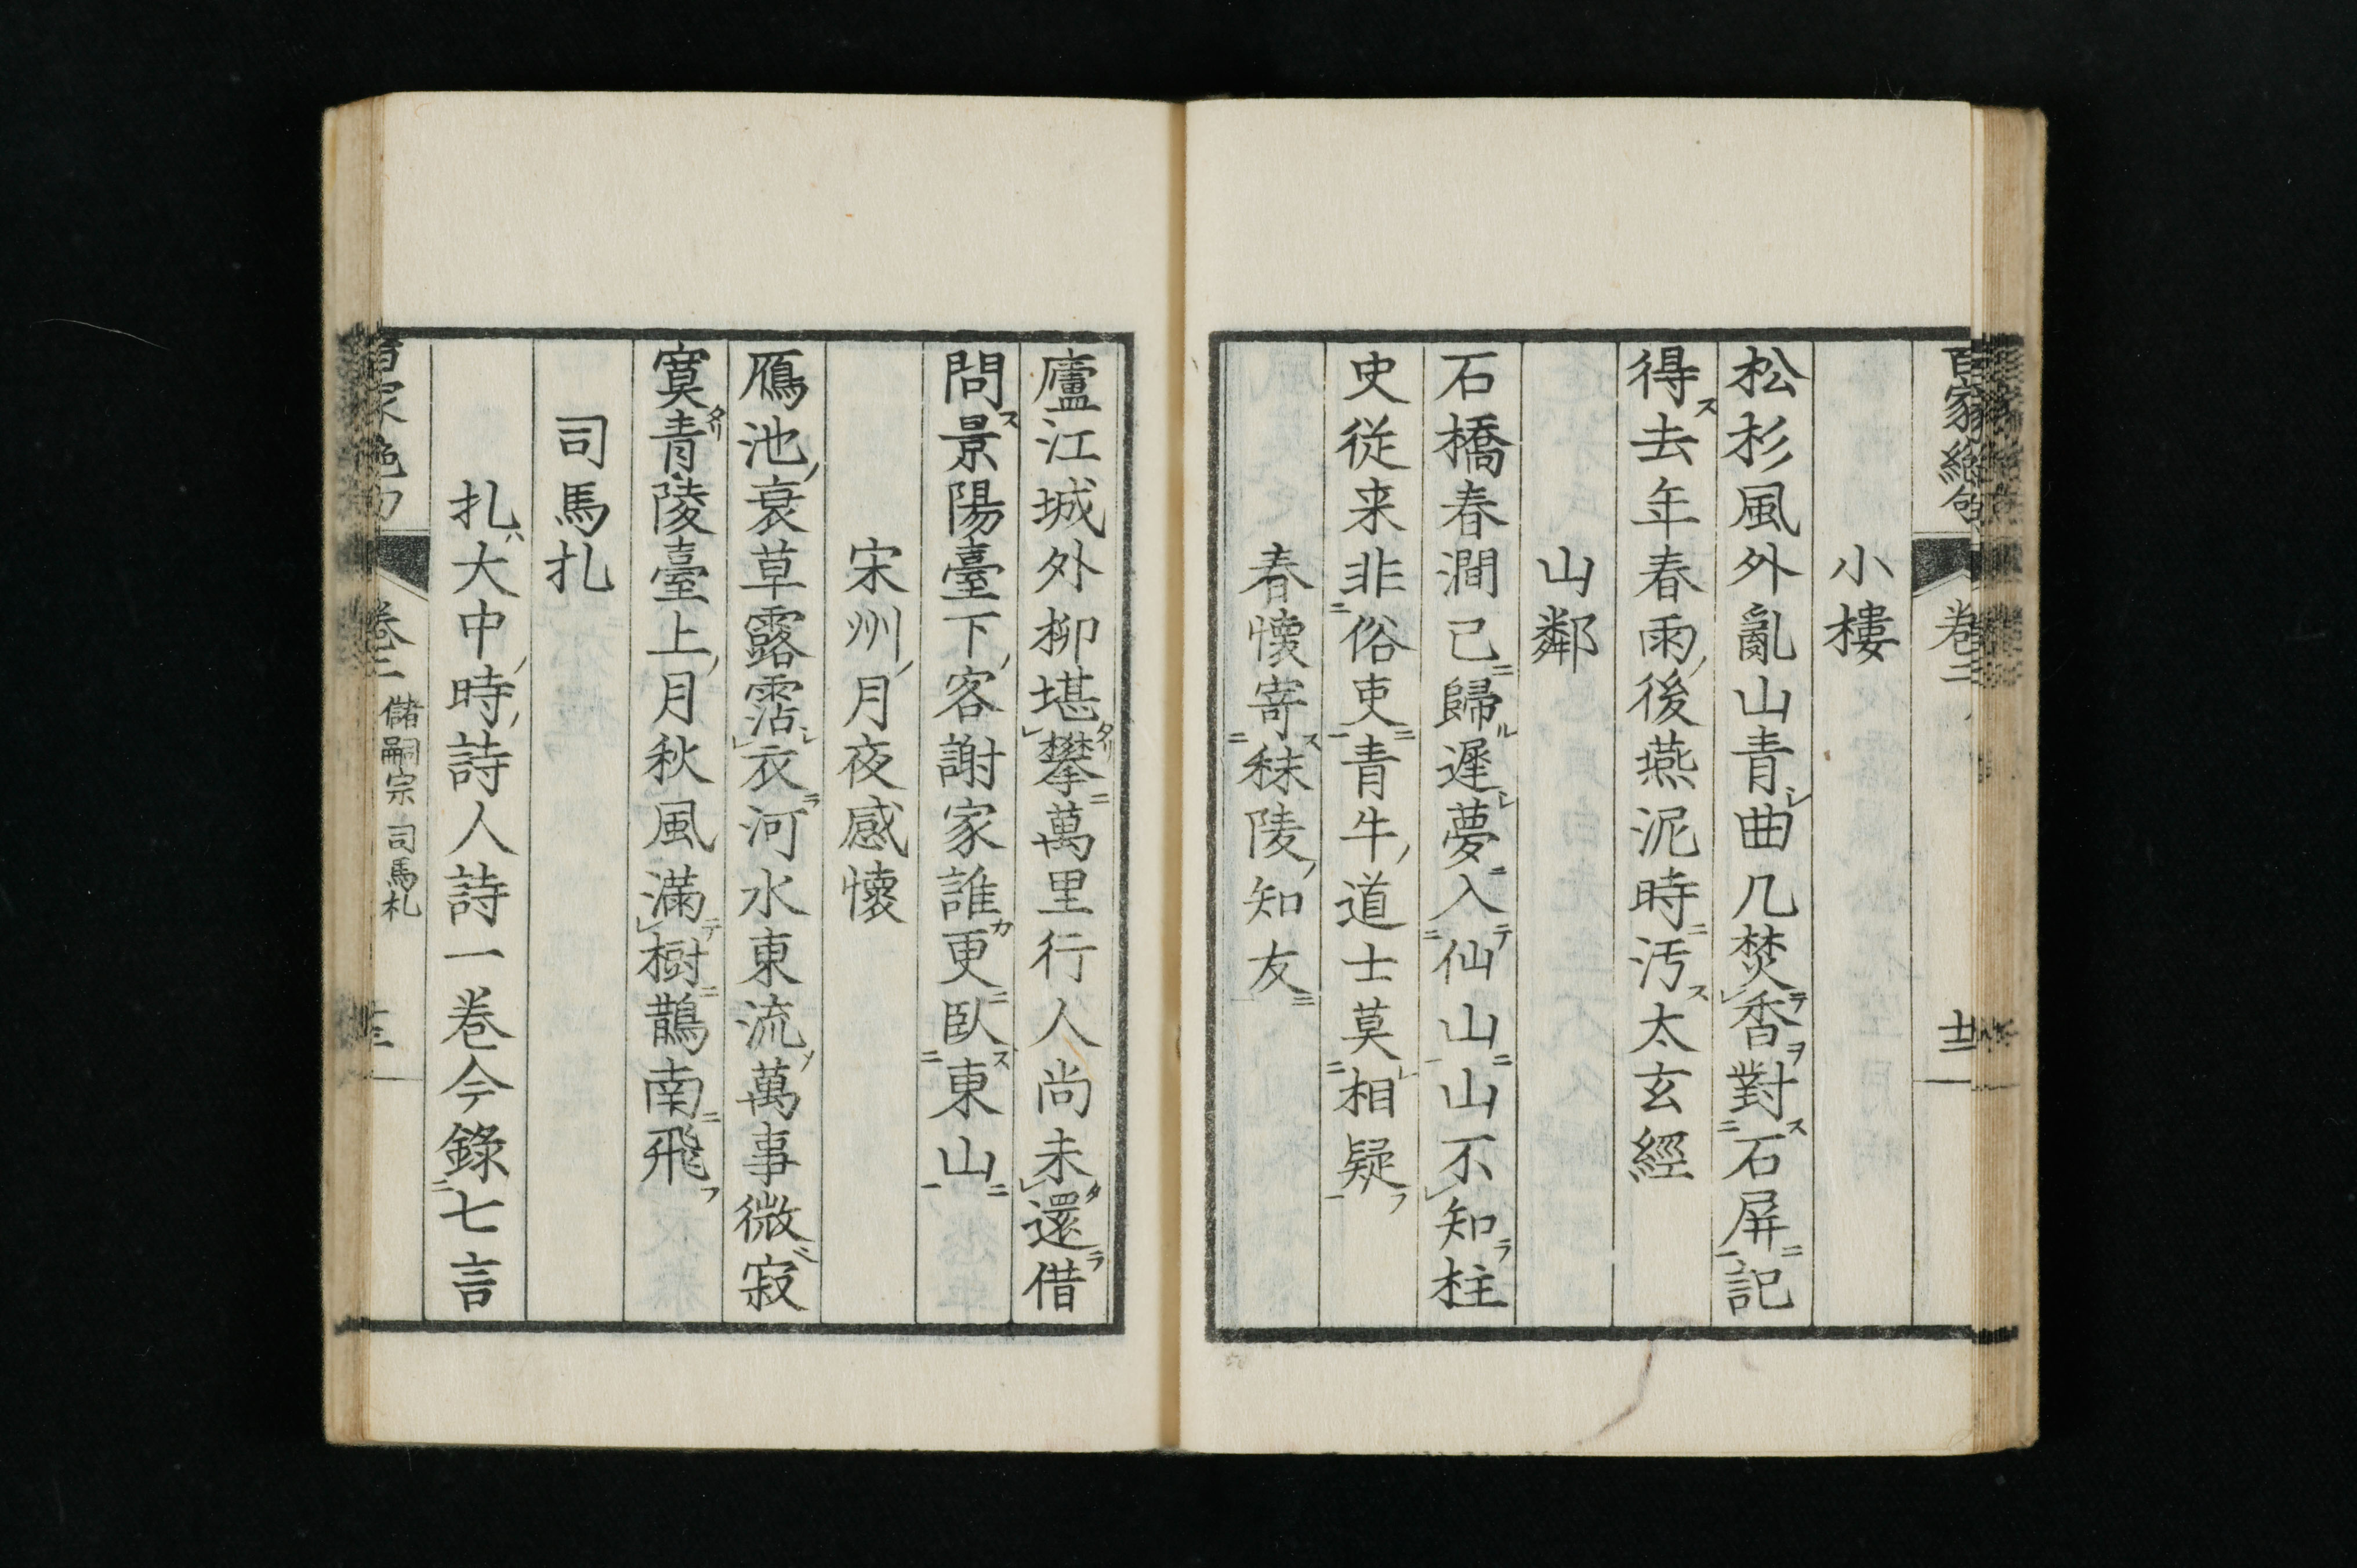 百家絶句 巻二 廿二
小樓
松杉風外亂山青曲几焚香對石屏記
得去年春雨後燕泥時汚太玄經
山鄰
石橋春澗已歸遲夢入仙山山不知柱
史従来非俗吏青牛道士莫相疑
春懷寄秣陵知友
廬江城外柳堪攀萬里行人尚未還借
問景陽臺下客謝家誰更臥東山
宋州月夜感懷
鴈池衰草露霑衣河水東流萬事微寂
寞青陵臺上月秋風滿樹鵲南飛
司馬扎
扎大中時詩人詩一巻今錄七言
百家絶句 巻二 儲嗣宗 司馬札